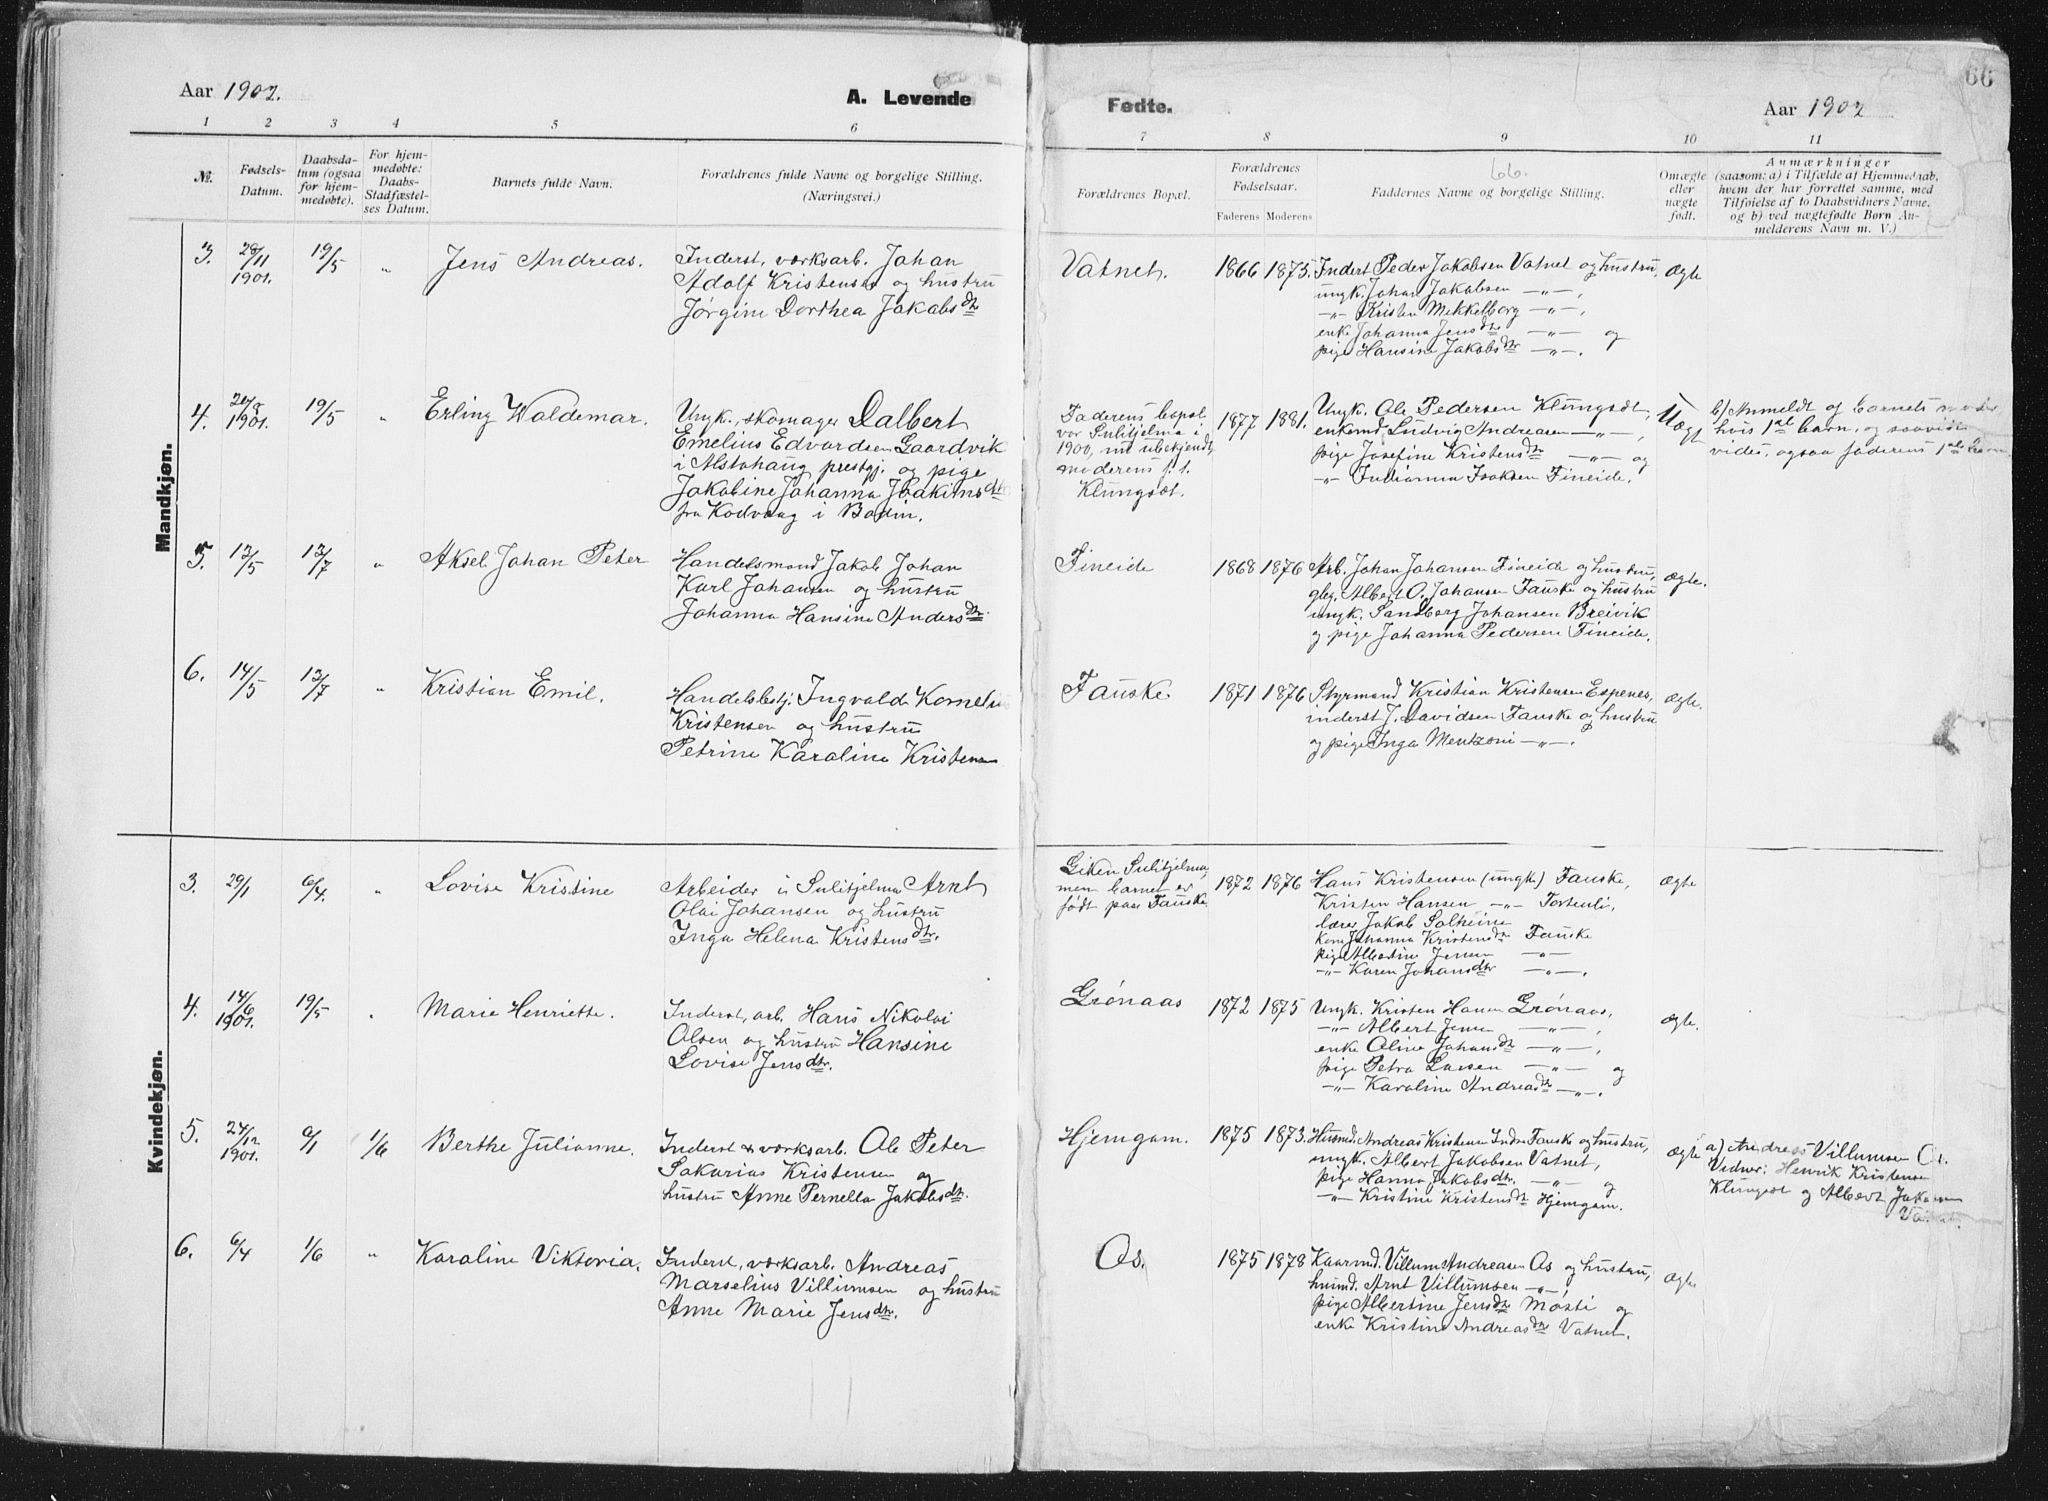 Aar 1902.
A. Levende
1 2 3 4 5 6
№.
Fødsels-
Datum.
Daabsda-
tum (ogsaa
for hjem-
medøbte).
For hjem-
medøbte:
Daabs-
Stadfæstel-
ses Datum.
Barnets fulde Navn.
Forældrenes fulde Navne og borgelige Stilling.
(Næringsvei.)
Mandkjøn.
3. 29/11 1901. 19/5 " Jens Andreas.
Inderst, værksarb. Johan
Adolf Kristensen og hustru
Jørgine Dorthea Jakobsdtr
4. 1901. 19/5 " Erling Waldemar.
Ungk., skomager Dalbert
Emelius Edvardsen Gaardvik
i Alstahaug prestgj. og pige
Jakobine Johanna Joakimsdtr
fra Kodvaag i Bodin.
5. 12/5 13/7 " Aksel Johan Peter
Handelsmand Jakob Johan
Karl Johansen og hustru
Johanna Hansine Andersdtr.
6. 14/5 13/7 " Kristian Emil.
Handelsbestj. Ingvald Kornelius
Kristensen og hustru
Petrine Karoline Kristensen
Kvindekjøn.
3. 29/1 6/4. " Lovise Kristine
Arbeider i Sulitjelma Arnt
Olai Johansen og hustru
Inga Helena Kristensdtr.
4. 14/6 1901. 19/5 " Marie Henriette.
Inderst, arb. Hans Nikolai
Olsen og hustru Hansine
Lovise Jensdtr.
5. 24/12 1901. 6/1 1/6 Berthe Julianne.
Inderst & værksarb. Ole Peter
Sakarias Kristensen og
hustru Anne Pernella Jakobsdtr.
6. 6/4 1/6 " Karoline Viktoria.
Inderst, værksarb. Andreas
Marselius Villumsen og hustru
Anne Marie Jensdtr.
66
Fødte.
Aar 1902
7 8 9 10 11
66.
Forældrenes Bopæl.
Forældrenes
Fødselsaar.
Faderens Moderens
Faddernes Navne og borgelige Stilling.
Omægte
eller
nægte
født.
Anmærkninger
(saasom: a) i Tilfælde af Hjemmedaab,
hvem der har forrettet samme, med
Tilføielse af to Daabsvidners Navne,
og b) ved nægtefødte Børn An-
melderens Navn m. V.)
Vatnet. 1866 1875. Indert Peder Jakobsen Vatnet og hustru, ægte
ungk. Johan Jakobsen —"—,
—"— Kristen Mikkelborg —"—,
enke Johanna Jensdtr —"— og
pige Hansine Jakobsdtr —"—.
Faderens bopæl
var Sulitjelma i
1900, nu ubekjendt,
moderens p.t.
Klungsæt.
1877 1881. Ungk. Ole Pedersen Klungsæt, Uægt
enkemd Ludvig Andreasen —"—,
pige Josefine Kristensdtr —"— og
—"— Julianna Isaksen Fineide.
b/ Anmeldt af barnets moder
hvis 1ste barn, og saavidt
vides, ogsaa faderens 1ste barn
Fineide 1868 1876 Arb. Johan Johansen Fineide og hustru, ægte.
Albert O. Johansen Fauske og hustru
ungk. Sandberg Johansen Breivik
og pige Johanna Pedersen Fineide.
Fauske 1871 1876 Styrmand Kristian Kristensen Espenes, ægte.
inderst J. Davidsen Fauske og hustru
og pige Inga Mentzoni —"—.
Giken Sulitjelma,
men barnet er
født paa Fauske.
1872 1876 Hans Kristensen (ungk.) Fauske, ægte
Kristen Hansen —"— Tortenli,
lærer Jakob Solheim
Kone Johanna Kristensdtr Fauske
pige Albertine Jensen —"—
—"— Karen Johansdtr —"—.
Grønaas 1872 1875 Ungk. Kristen Hansen Grønaas, ægte.
—"— Albert Jensen —"—,
enke Oline Johansdtr —"—,
pige Petra Larsen —"— og
—"— Karoline Andreasdtr —"—.
Hjemgam. 1875 1873. Husmd. Andreas Kristensen Indre Fauske og hustru, ægte
ungk. Albert Jakobsen Vatnet,
pige Hanna Jakobsdtr. —"— og
—"— Kristine Kristensdtr Hjemgam.
a) Andreas Villumsen Os.
Vidner: Henrik Kristensen
Klungset og Albert Jakobsen
Vatnet.
Os. 1875 1878 Kaarmd. Villum Andreasen Os og hustru, ægte
husmd. Arnt Villumsen —"—,
pige Albertine Jensdtr Mosti og
enke Kristine Andreasdtr Vatnet.